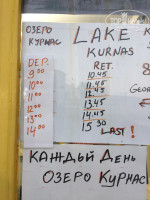 ОЗЕРО
КУРНАС
DEP.
9 00
10 00
11 00
12 00
13 00
14 00
LAKE
KURNAS
RET.
10.45
11.45
12.45
13.45
14.45
15 30
LAST!
GEO
КАЖДЫЙ ДЕНЬ
ОЗЕРО КУРНАС